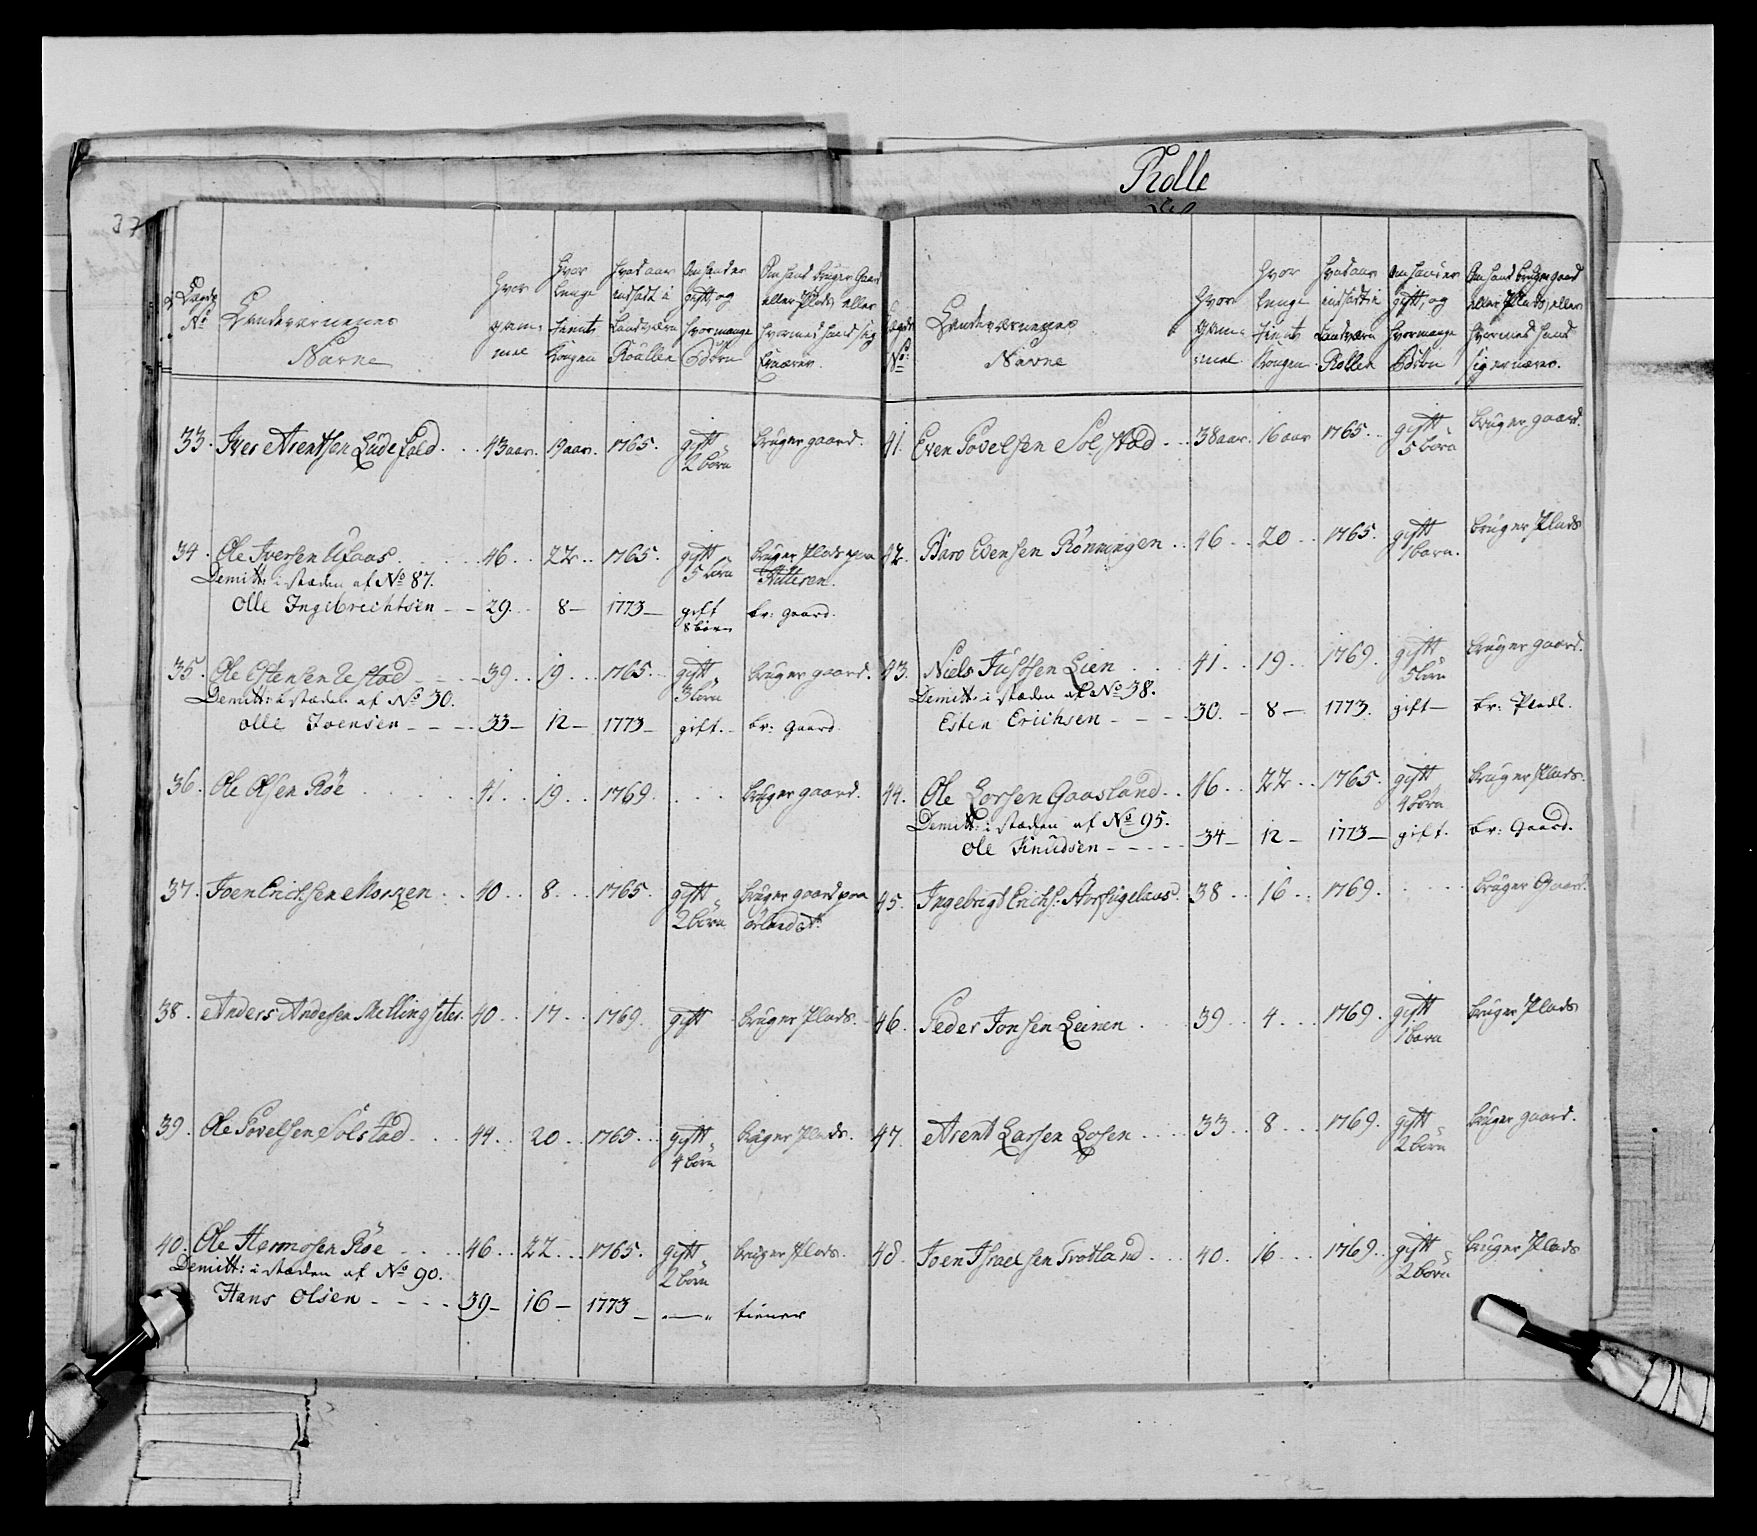 Rolle
37
No
Landeværnernes
Navne
Hvor
gam-
mel
Hvor
Længe
tient
Kongen
Hvad aar
indsadt i
Landværn
Roullen
Om hand er
gift, og
hvormange
Börn
Om hand bruger Gaard
eller Plads, eller
hvormed hand sig
Ernærer.
33. Iver Arentsen 43 aar. 19 aar. 1765. gift 2 börn bruger gaard.
34. Ole Iversen Aasaas 46 22 1765. gift 5 börn bruger Plads paa
Demitt: i stæden af No 87.
Olle Ingebrechtsen 29 8 1773 gift 8 börn br: gaard.
35. Ole Estensen 39 19 1765 gift 3 börn bruger gaard.
Demitt: i stæden af No 30.
Olle Joensen 33 12 1773 gift br: gaard
36. Ole Olsen Röe 41 19 1769 bruger gaard.
37. Joen Erichsen Morken 40 8 1765 gift 2 börn bruger gaard paa
örlandet.
38. Anders Andersen Mellingseter 40 17 1769 gift bruger Plads.
39. Ole Povelsen Solstad 44 20 1765 gift 4 börn bruger Plads.
40. Ole Hermosen Röe 46 22 1765 gift 2 börn bruger Plads.
Demitt: i stæden af No 90.
Hans Olsen 39 16 1773 — tiener
No:
Landeværnernes
Navne
Hvor
gam-
mel
Hvor
længe
tient
Kongen
Hvad aar
indsadt i
Landværn
Rollen
Om hand er
gift, og
hvormange
Börn
Om hand bruger gaard
eller Plads, eller
hvormed hand
sig ernærer.
41. Even Povelsen Solstad 38 aar. 16 aar 1765. gift 5 börn bruger gaard.
42. Baro Evensen Rönningen 46 20 1765. gift 1 barn. bruger Plads
43. Niels Justsen Lien 41 19 1769. gift 5 börn bruger gaard.
Demitt: i stæden af No 38.
Esten Erichsen 30. 8 1773. gift br: Pladl.
44. Ole Larsen Gaasland 46 22 1765. gift 4 börn bruger Plads.
Demitt: i stæden af No 95.
Ole Knudsen 34 12 1773 gift. br: Gaard.
45. Ingebrigt Erichs: 38 16 1769. bruger Gaard.
46. Peder Jonsen Leinen 39 4 1769. gift 1 barn bruger Plads
47. Arent Larsen Losen 33 8 1769. gift 2 börn bruger gaard.
48. Joen Israelsen Trotland 40 16 1769. gift 2 börn bruger Plads